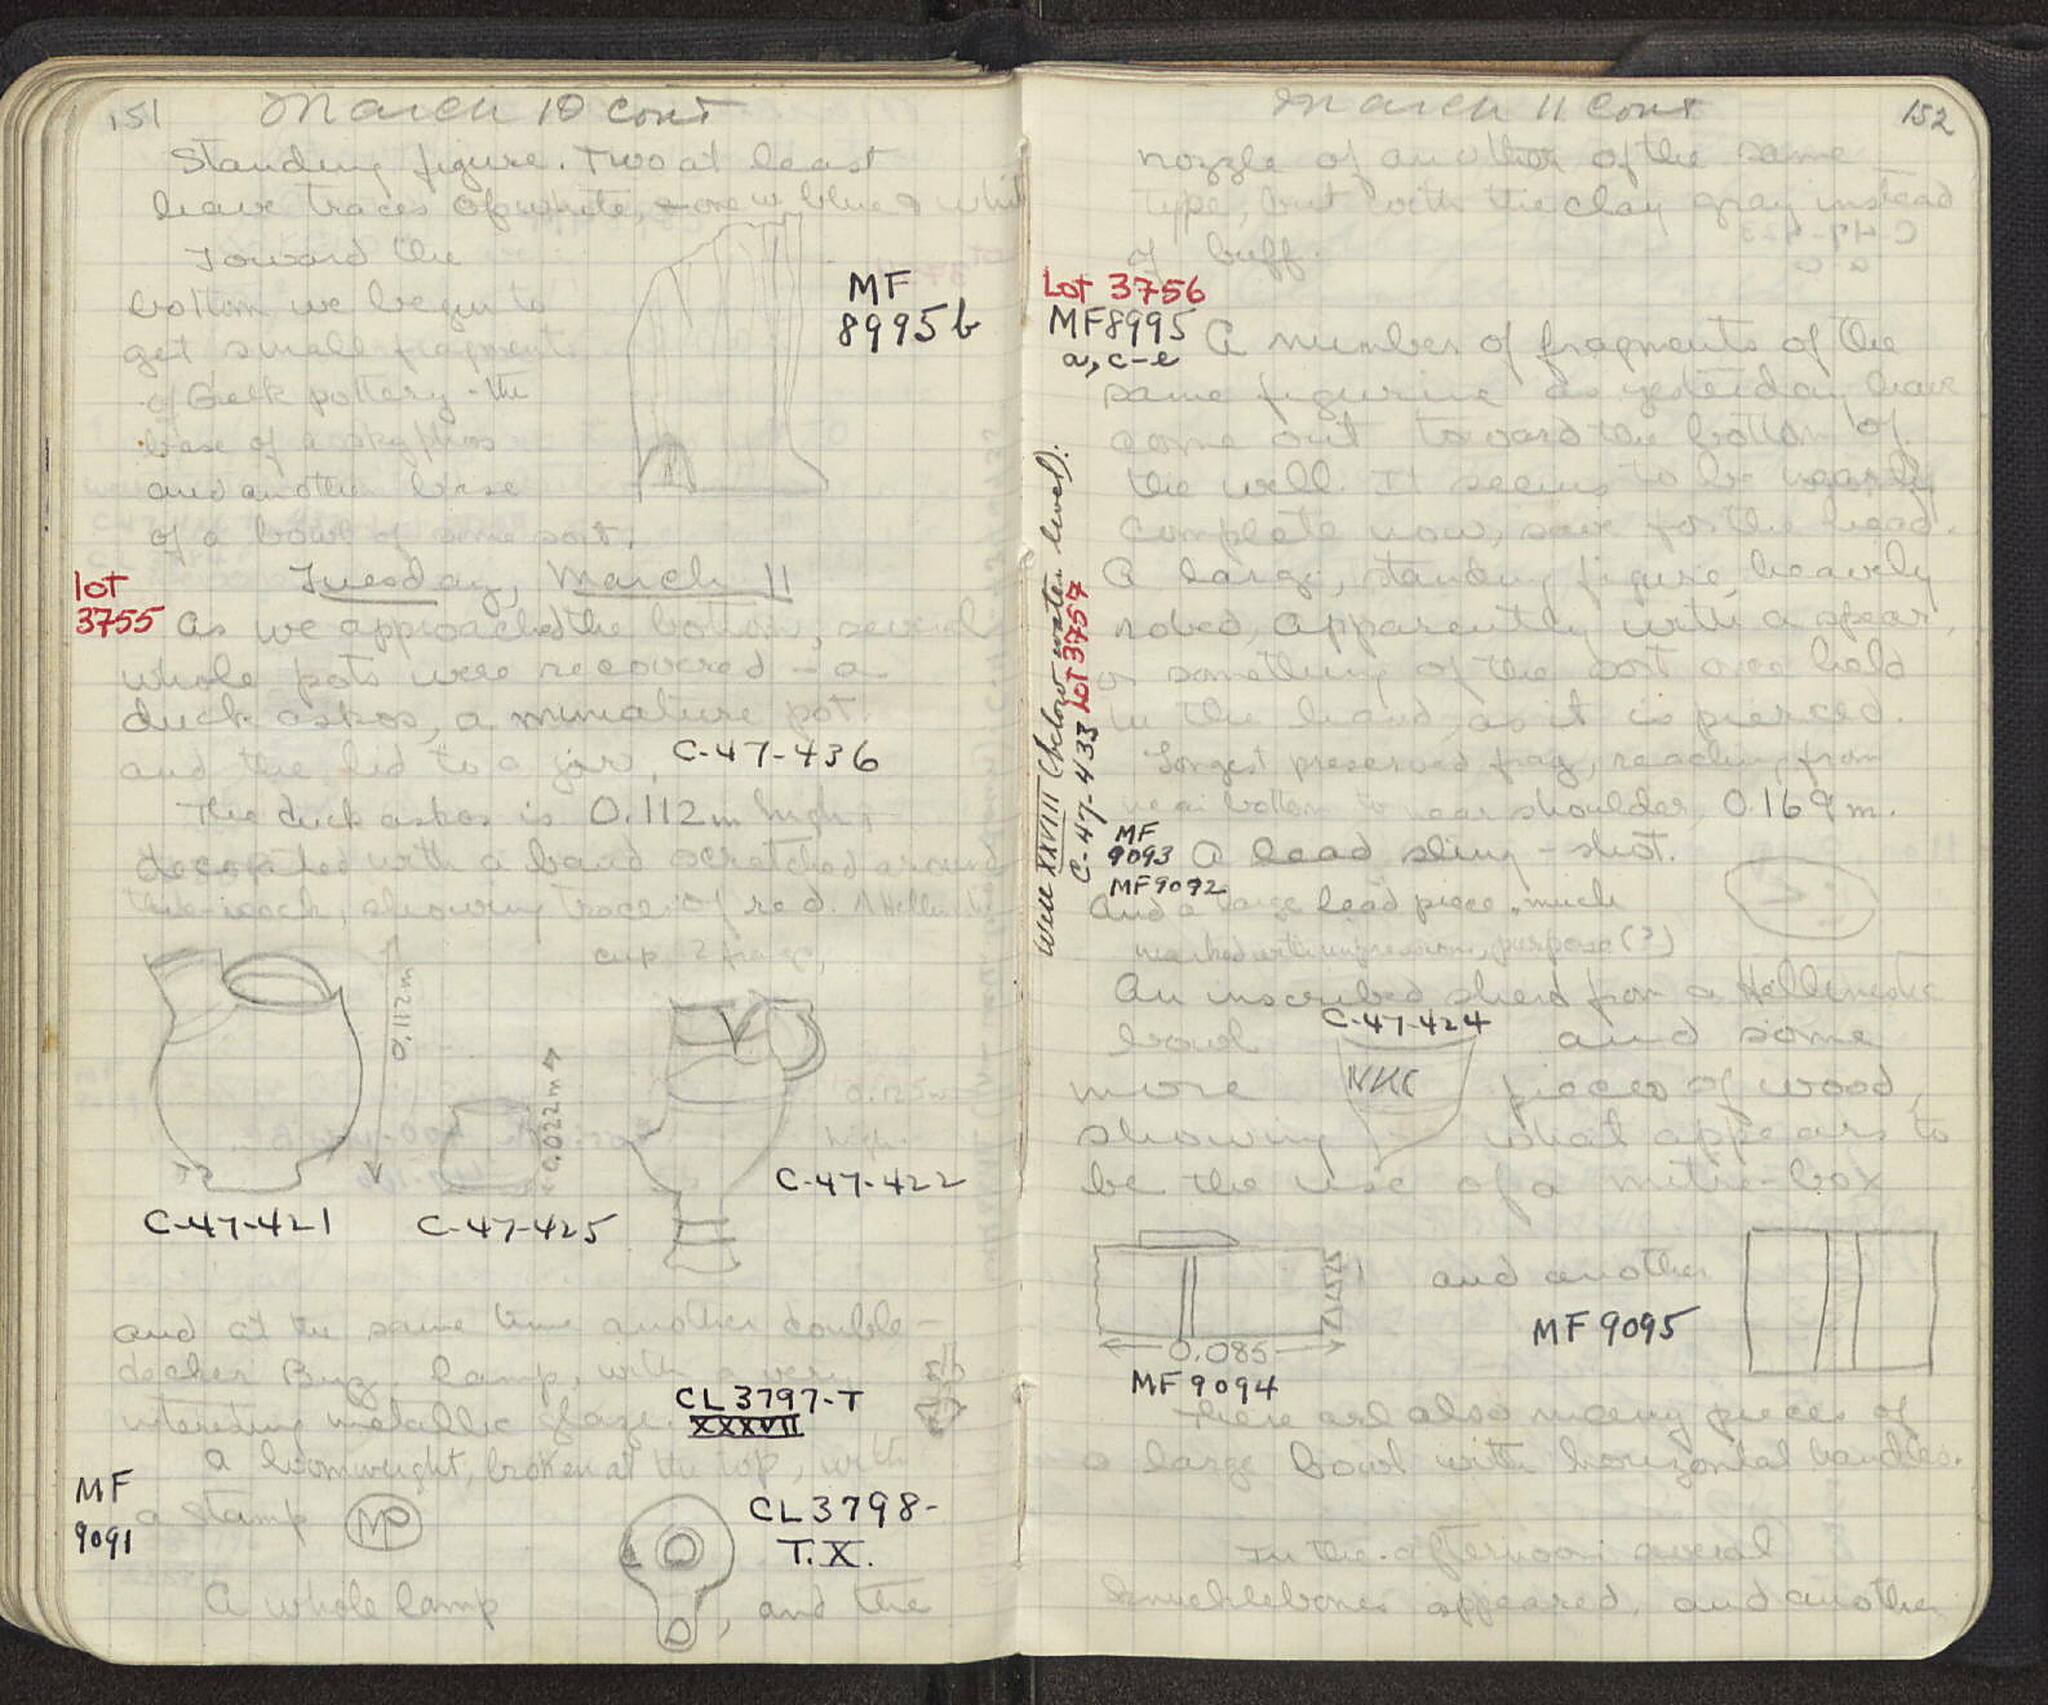 151
March 10 cont
Standing figure. Two at least
have traces of white, one w blue & white
Toward the
bottom we begin to
get small fragments
of Greek pottery - the
base of a skyphos
and another base
of a bowl of some sort.
MF
8995b
Tuesday, March 11
Lot
3755
As we approached the bottom, several
whole pots were recovered - a
duck askos, a miniature pot
and the lid to a jar. C-47-436
The duck askos is 0.112m high,
decorated with a band scratched around
the neck, showing traces of red. A Hellenistic
cup 2 frags,
0.112m
0.022m
0.125m
high.
C-47-421
C-47-425
C-47-422
and at the same time another double-
decker Byz. lamp, with a very
interesting metallic glaze.
CL3797-T
XXXVII
A loomweight, broken at the top, with
MF
9091
a stamp MP
CL3798-
T.X.
A whole lamp , and the
March 11 cont
152
nozzle of another of the same
type, but with the clay gray instead
of buff.
Lot 3756
MF8995
a, c-e
A number of fragments of the
same figurine as yesterday have
come out toward the bottom of
the well. It seems to be nearly
complete now, save for the head.
A large, standing figure, heavily
robed, apparently with a spear,
or something of the sort once held
in the hand, as it is pierced.
Longest preserved frag, reaching from
near bottom to near shoulder, 0.169m.
Well XXVIII (below water level):
C-47-433 Lot 3757
MF
9093
A lead sling-shot.
MF9092
And a large lead piece, much
marked with impressions, purpose (?)
An inscribed sherd from a Hellenistic
C-47-424
bowl and some
more NKC pieces of wood,
showing what appears to
be the use of a mitre-box
0.085
MF 9094
and another
MF 9095
There are also many pieces of
a large bowl with horizontal handles.
In the afternoon several
knucklebones appeared, and another